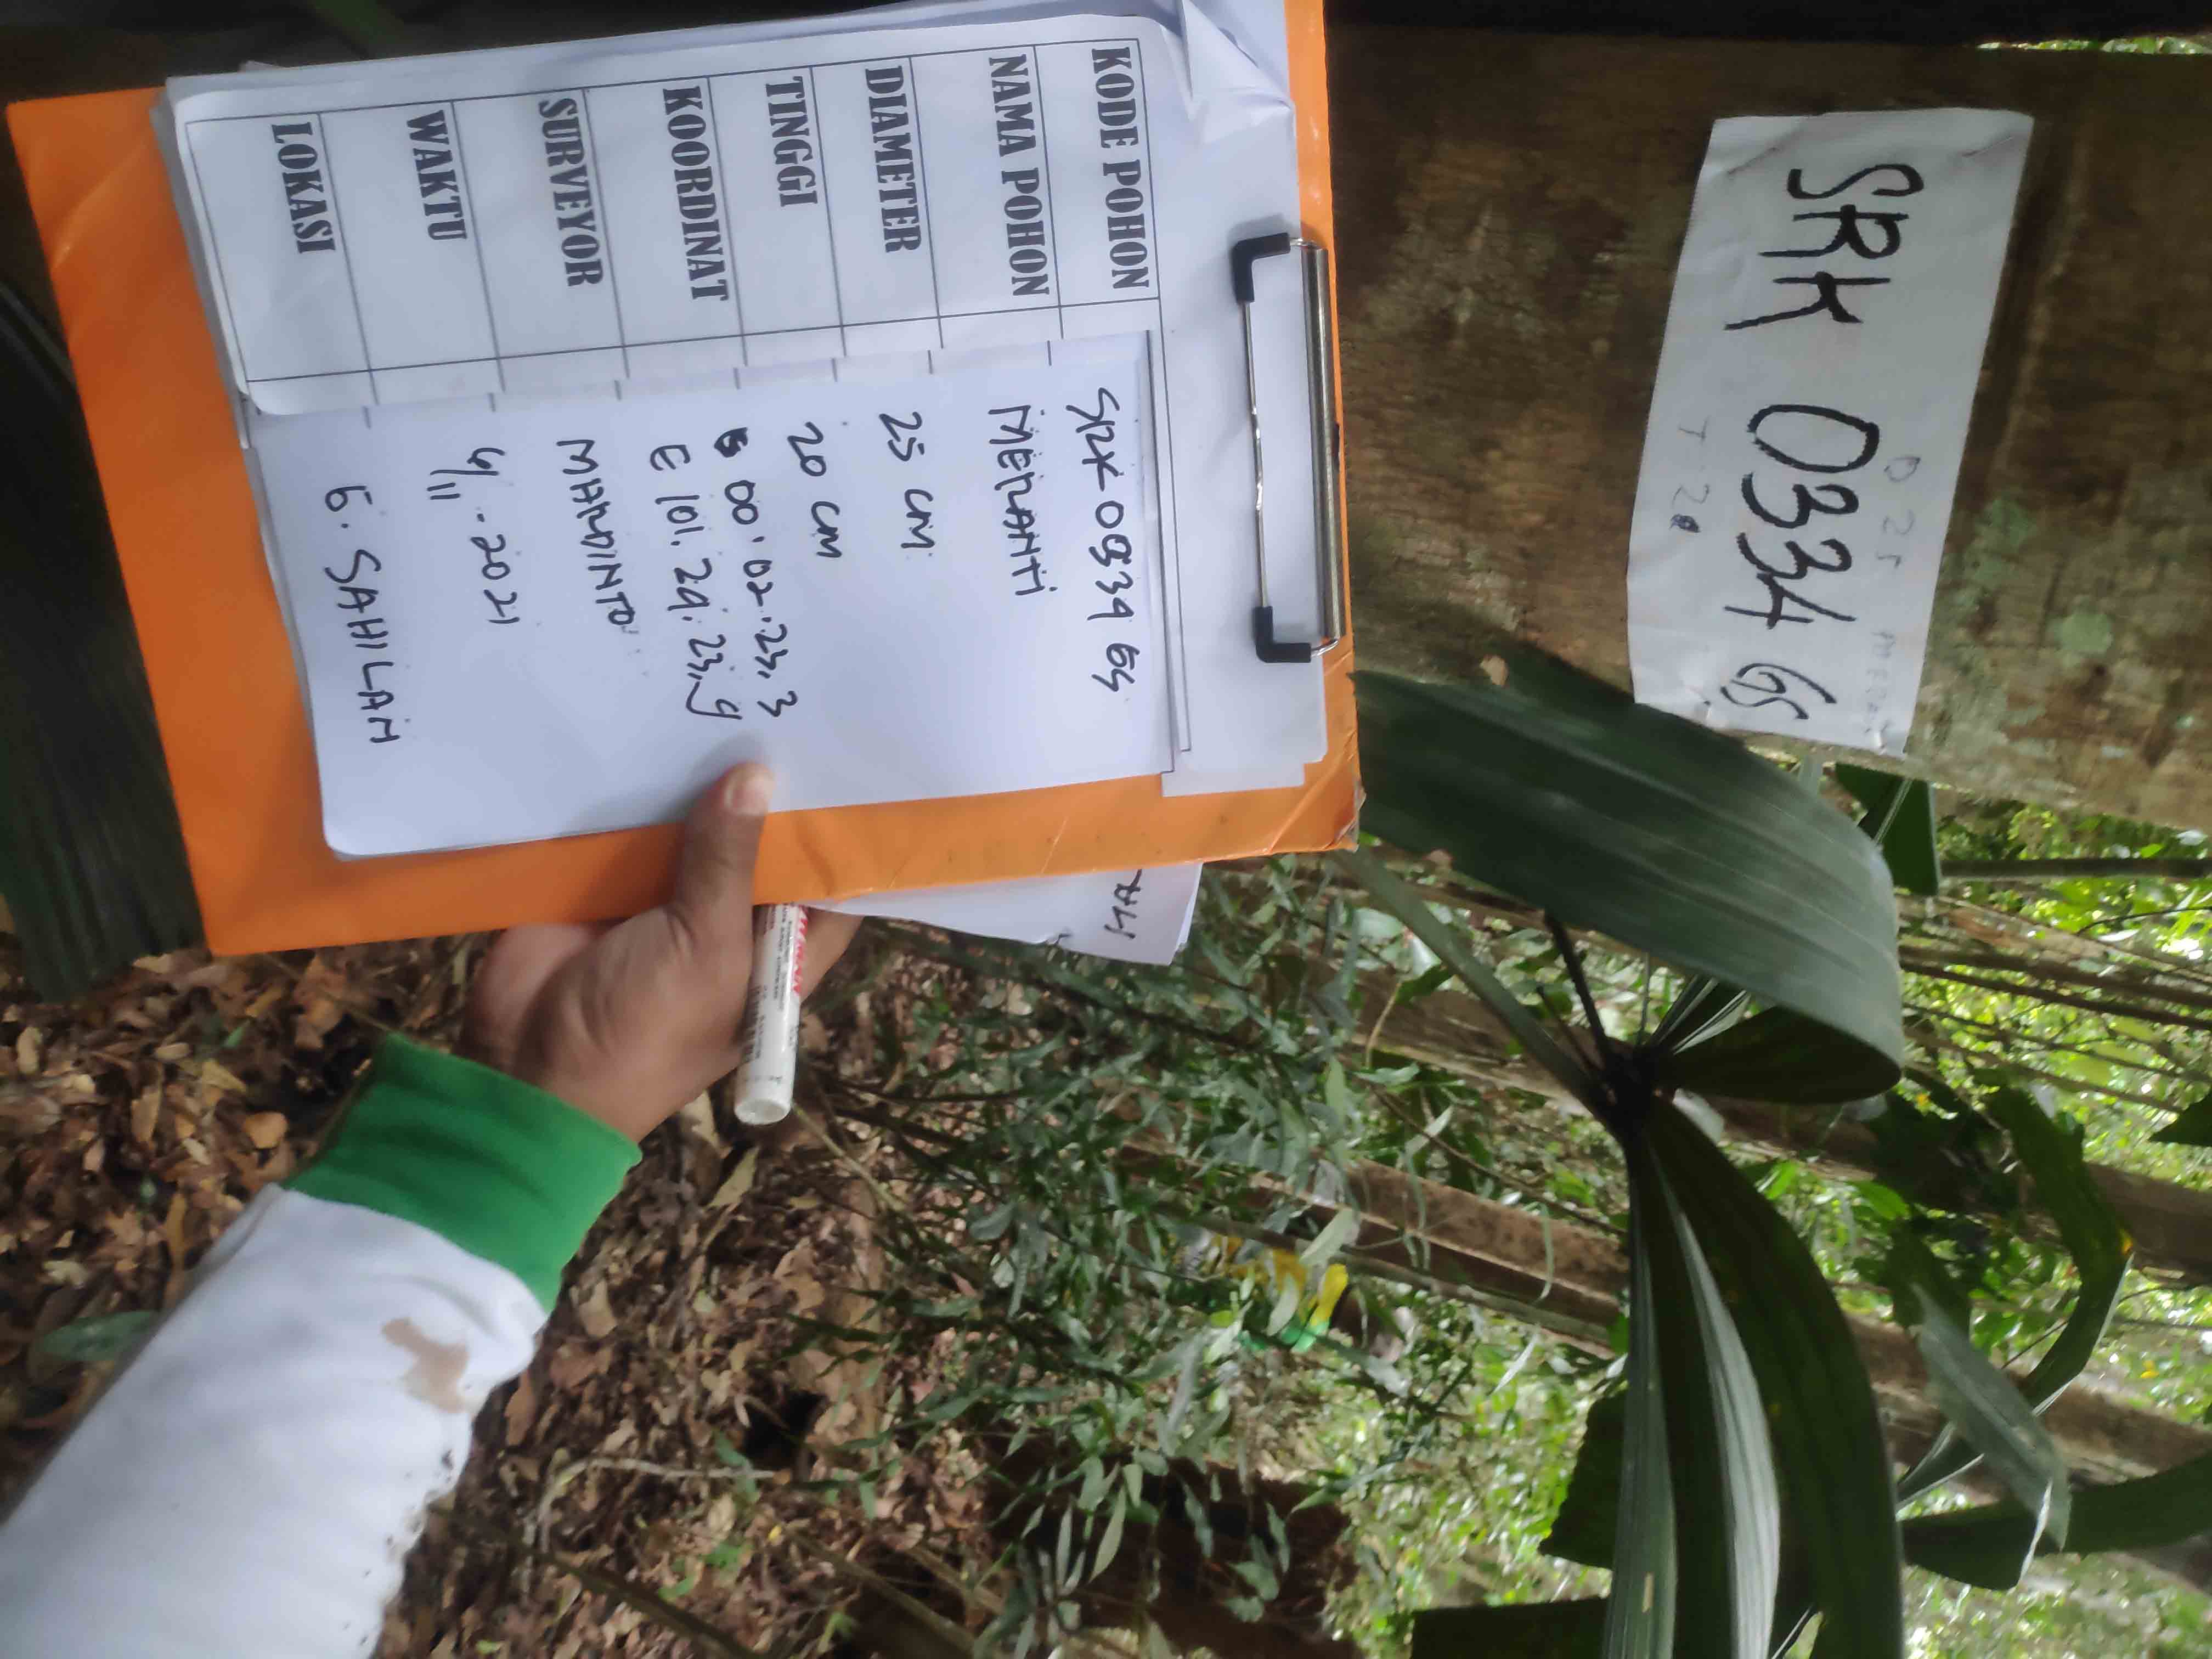 D 25 MERAN
SRK 0334 GS
T 20
KODE POHON SRK 0334 GS
NAMA POHON MERANTI
DIAMETER 25 CM
TINGGI 20 CM
KOORDINAT S 00.02.23.3
E 101.29.23.9
SURVEYOR MARDINTO
WAKTU 6/11-2021
LOKASI G. SAHILAN